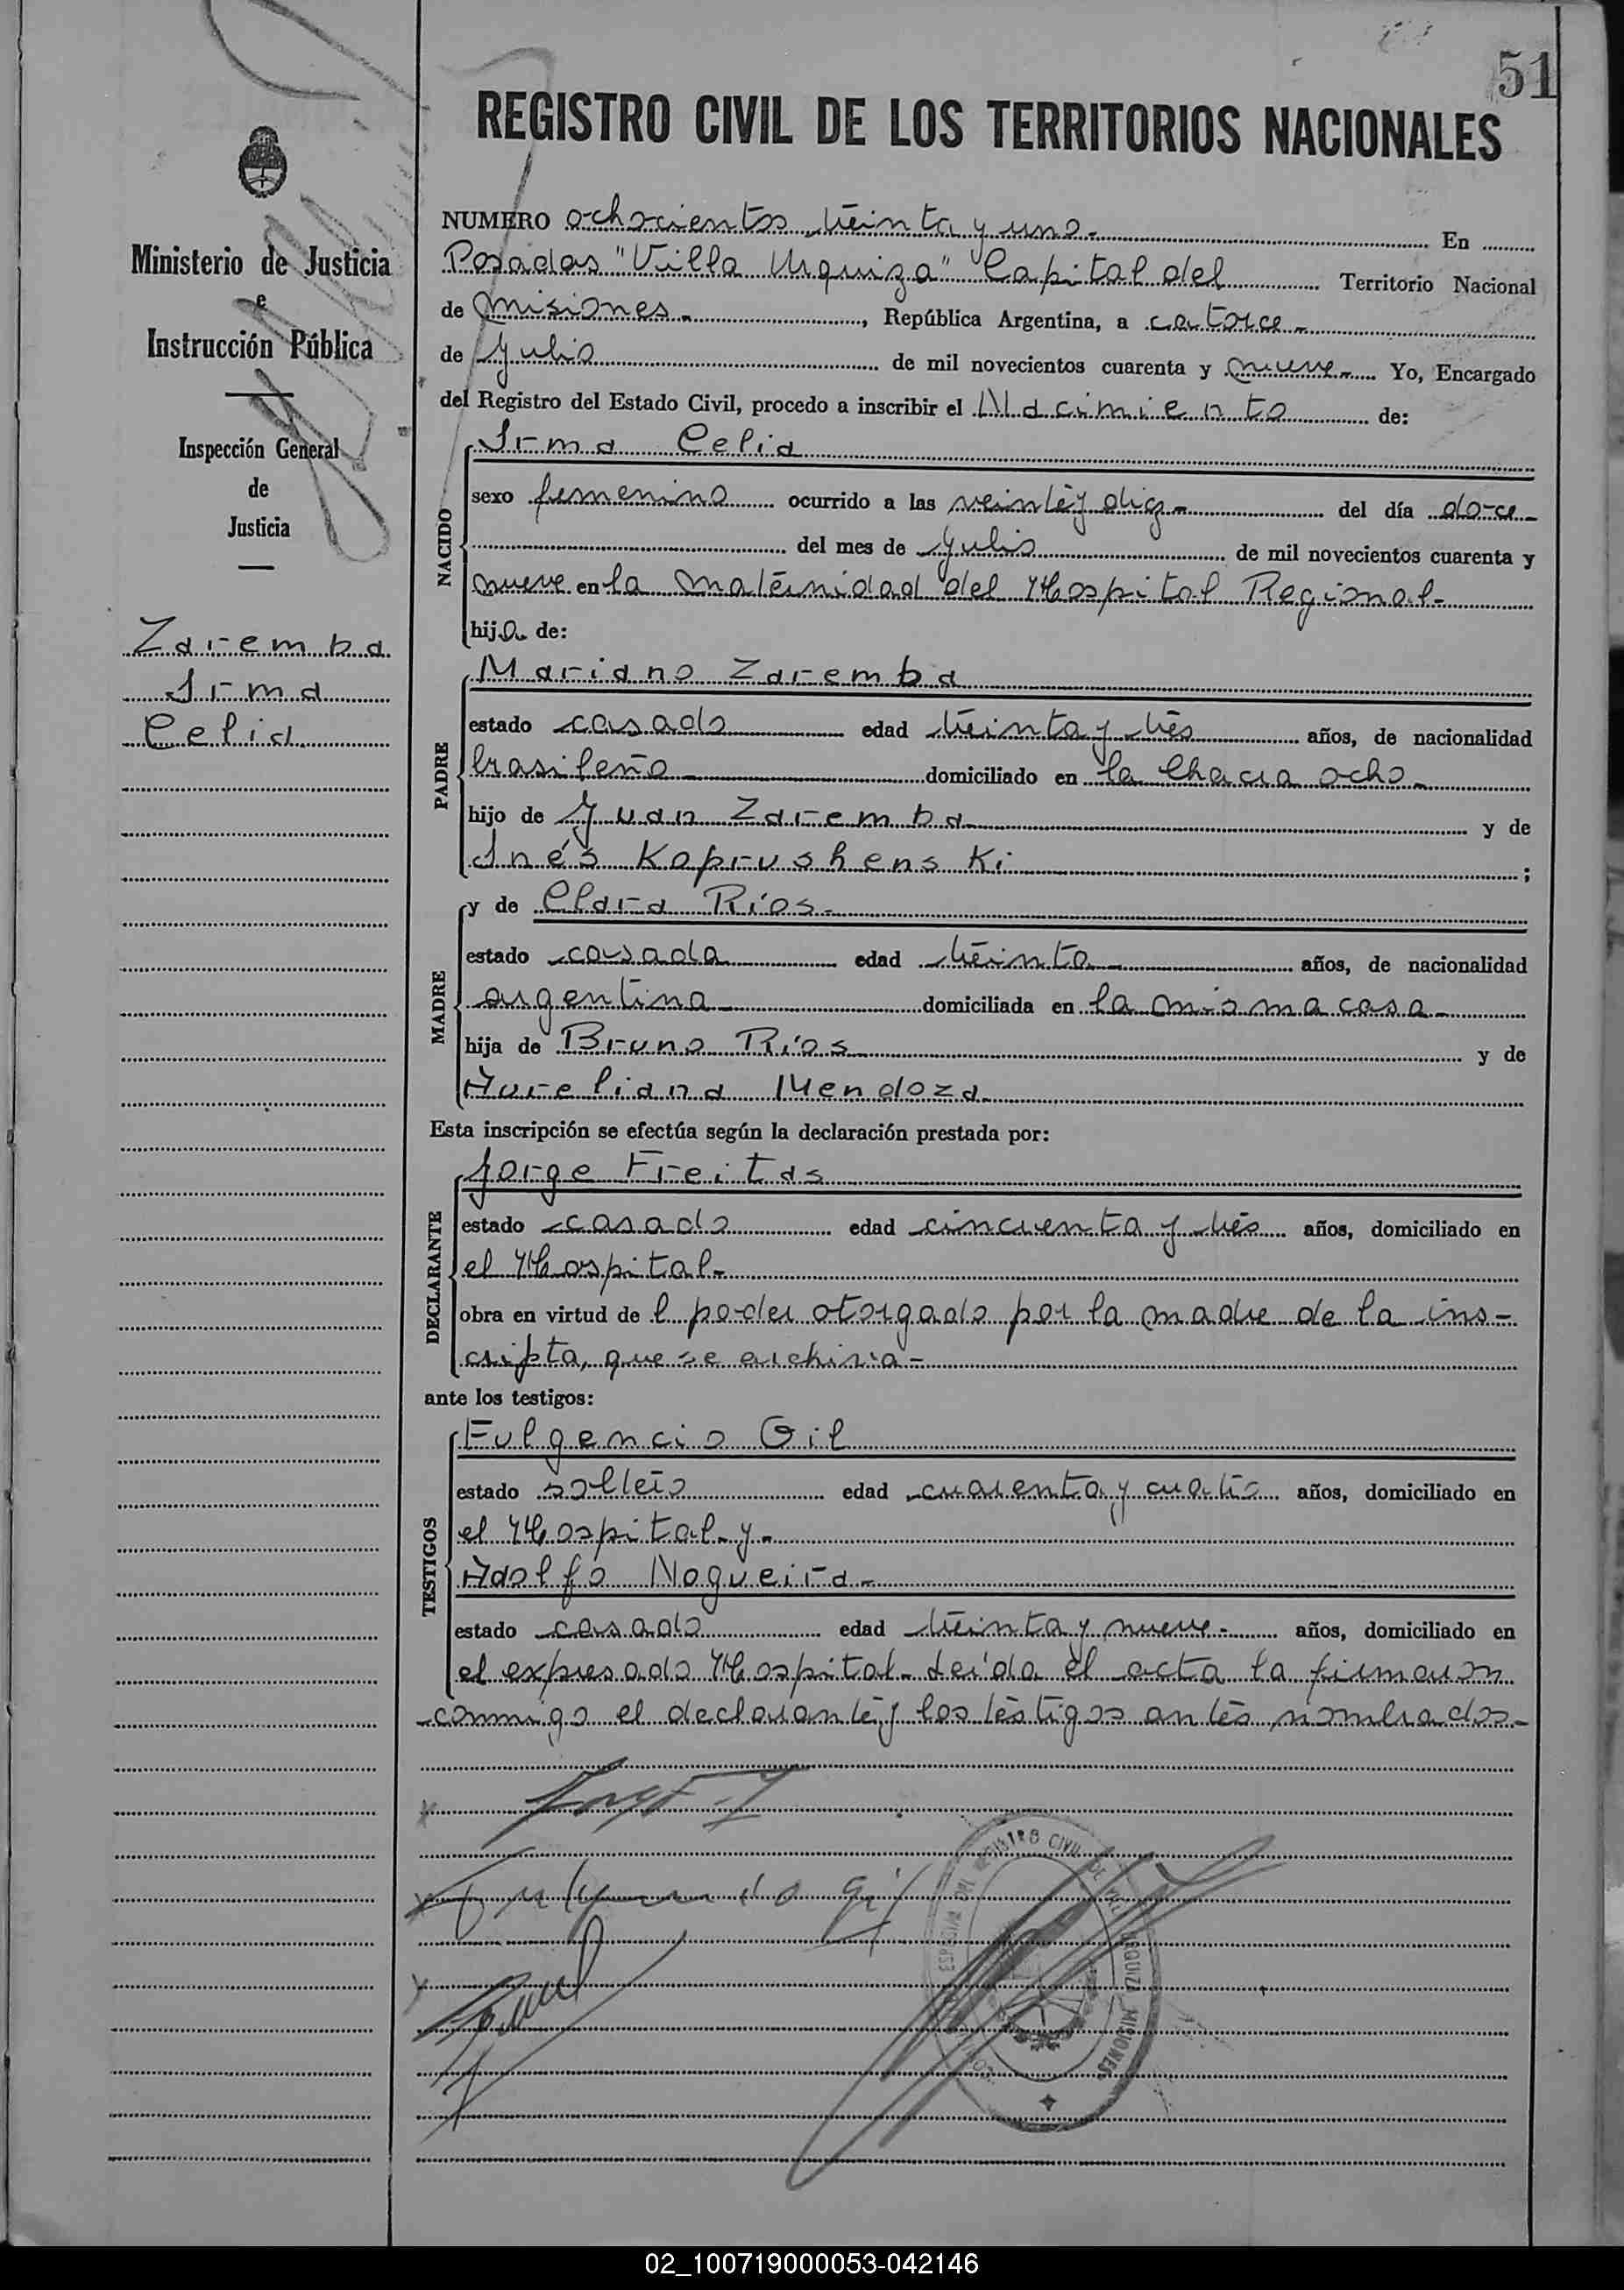 51
REGISTRO CIVIL DE LOS TERRITORIOS NACIONALES
Ministerio de Justicia
e
Instrucción Pública
Inspección General
de
Justicia
Zaremba
Irma
Celia
NUMERO ochocientos treinta y uno- En
Posadas "Villa Urquiza" Capital del Territorio Nacional
de Misiones-, República Argentina, a catorce-
de Julio de mil novecientos cuarenta y nueve- Yo, Encargado
del Registro del Estado Civil, procedo a inscribir el Nacimiento de:
NACIDO
Irma Celia
sexo femenino ocurrido a las veinte y diez- del día doce-
del mes de Julio de mil novecientos cuarenta y
nueve en la maternidad del Hospital Regional-
hija de:
PADRE
Mariano Zaremba
estado casado edad treinta y tres años, de nacionalidad
brasileño- domiciliado en la Chacra ocho-
hijo de Juan Zaremba y de
Inés Koprushenski ;
MADRE
y de Clara Ríos-
estado casada edad treinta- años, de nacionalidad
argentina- domiciliada en la misma casa-
hija de Bruno Ríos y de
Aureliana Mendoza-
Esta inscripción se efectúa según la declaración prestada por:
DECLARANTE
Jorge Freitas
estado casado edad cincuenta y tres años, domiciliado en
el Hospital-
obra en virtud de l poder otorgado por la madre de la ins-
cripta, que se archiva-
ante los testigos:
TESTIGOS
Fulgencio Gil
estado soltero edad cuarenta y cuatro años, domiciliado en
el Hospital- y-
Adolfo Nogueira-
estado casado edad treinta y nueve- años, domiciliado en
el expresado Hospital- Leída el acta la firmaron
conmigo el declarante y los testigos antes nombrados-
Fulgencio Gil
REGISTRO CIVIL DE URQUIZA MISIONES
02_100719000053-042146